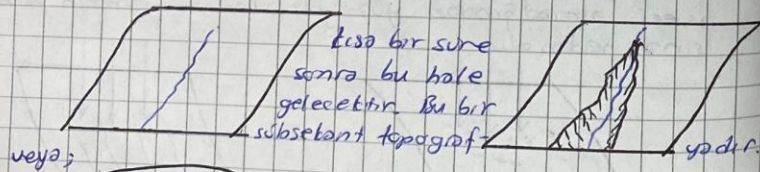 kısa bir sure
sonra bu hale
gelecektir. Bu bir
subsekant topograf-
yadır.
veya;